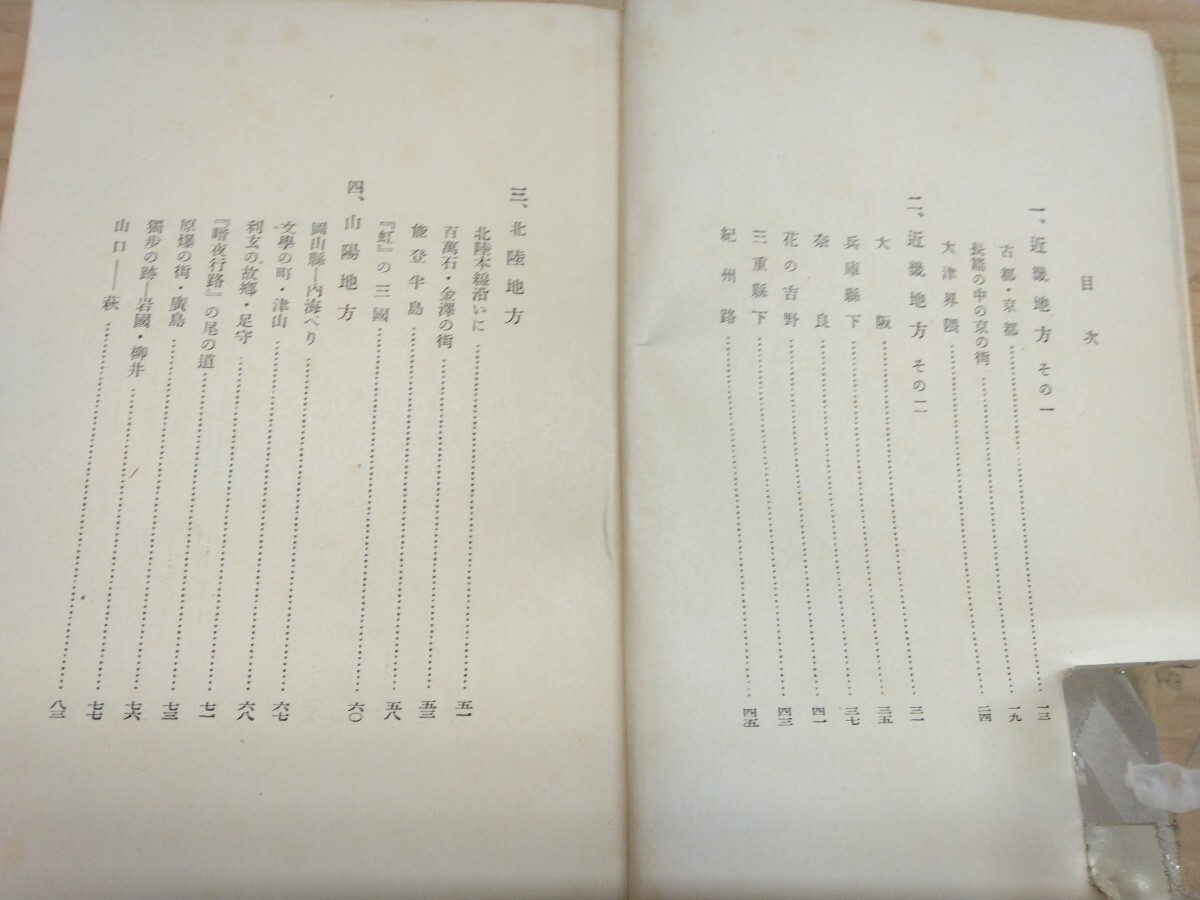 目次
一、近畿地方 その一
古都・京都……一三
長篇の中の京の街……一九
大津界隈……二四
二、近畿地方 その二
大阪……三一
兵庫縣下……三五
奈良……三七
花の吉野……四一
三重縣下……四三
紀州路……四五
三、北陸地方
北陸本線沿いに……五一
百萬石・金澤の街……五三
能登半島……五八
『虹』の三國……六〇
四、山陽地方
岡山縣―内海べり……六七
文學の町・津山……六八
利玄の故鄉・足守……七一
『暗夜行路』の尾の道……七三
原爆の街・廣島……七六
獨步の跡―岩國・柳井……七七
山口――萩……八三